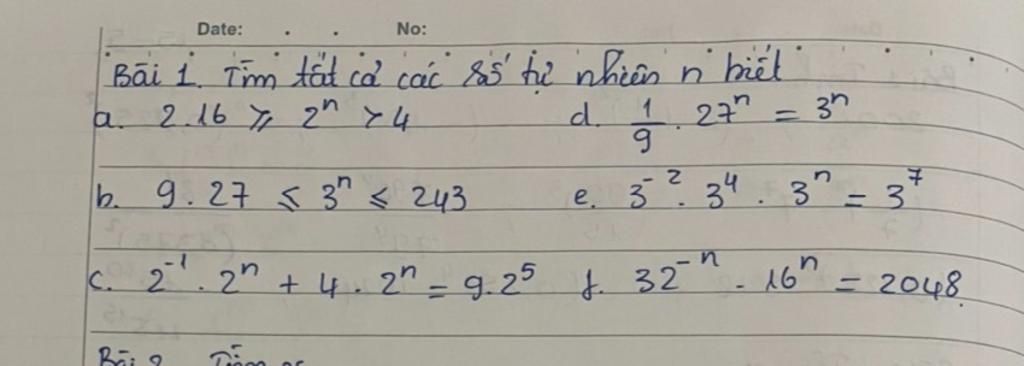 Date: . . No:
Bài 1. Tìm tất cả các số tự nhiên n biết
a. 2.16 ⩾ 2ⁿ > 4 d. 1/9 . 27ⁿ = 3ⁿ
b. 9.27 ⩽ 3ⁿ ⩽ 243 e. 3⁻² . 3⁴ . 3ⁿ = 3⁷
c. 2⁻¹ . 2ⁿ + 4 . 2ⁿ = 9.2⁵ f. 32⁻ⁿ . 16ⁿ = 2048
Bài 2 Tìm